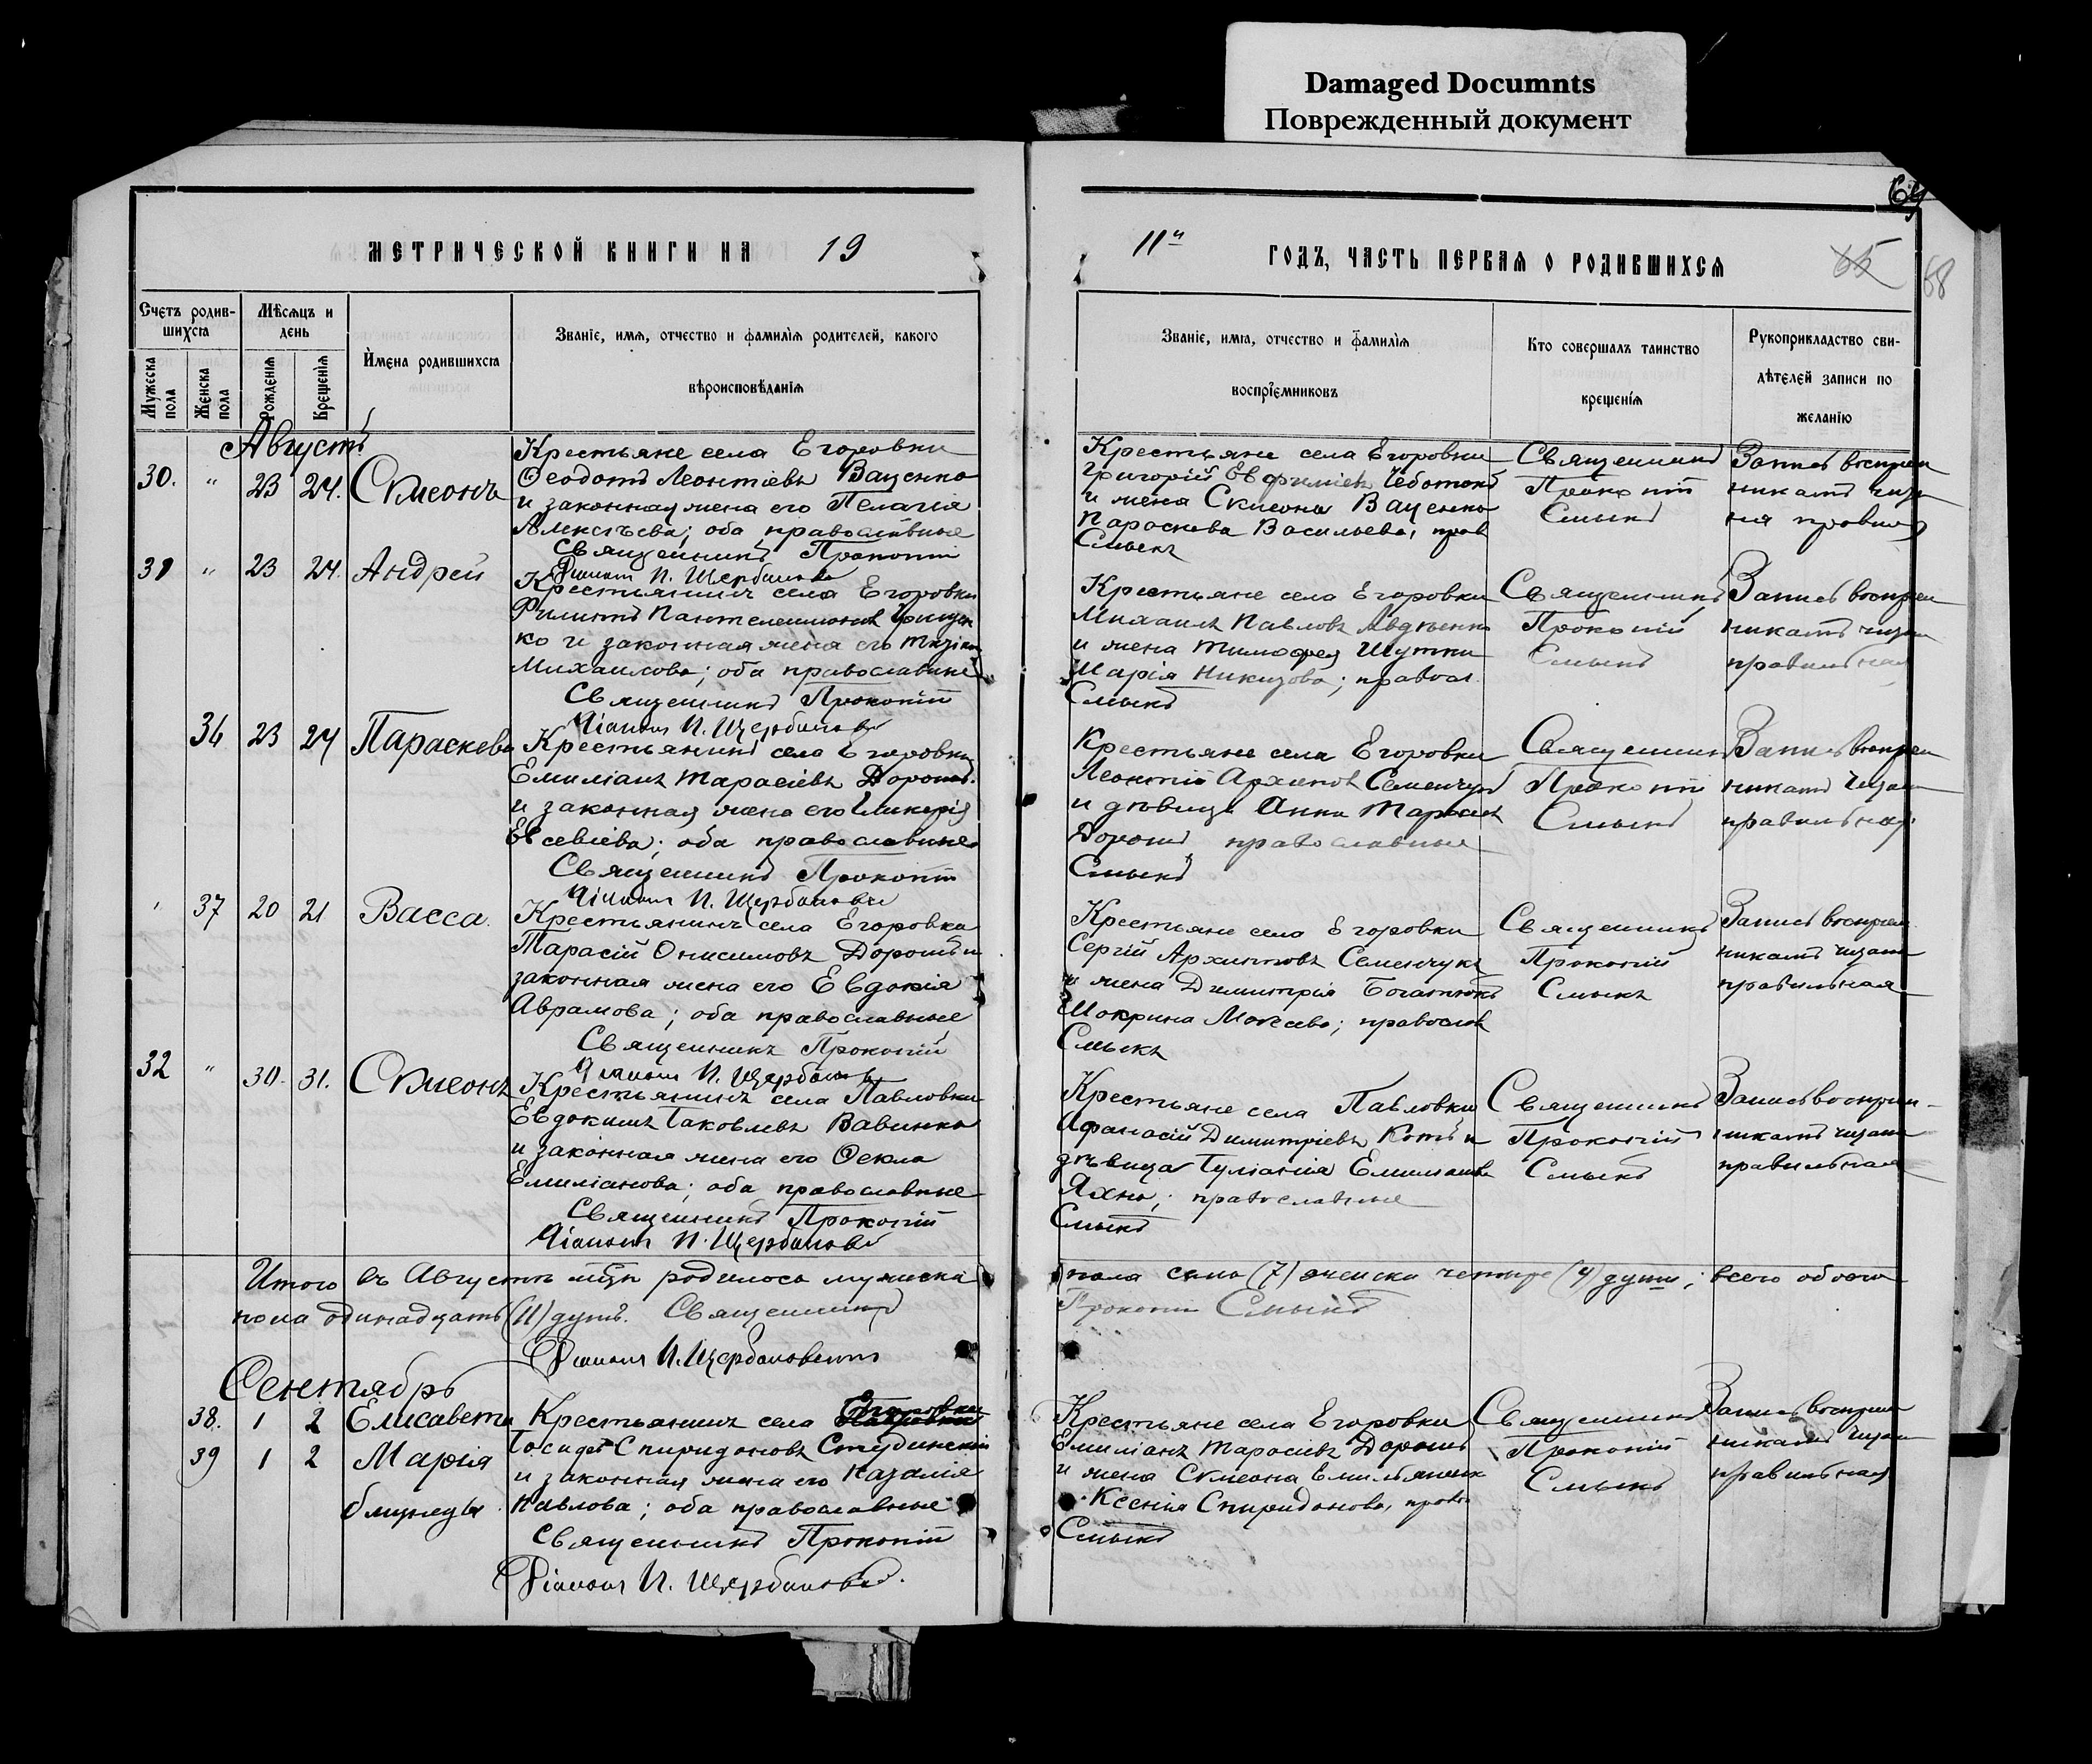 Damaged Documnts
Поврежденный документ
64
МЕТРИЧЕСКОЙ КНИГИ НА 19
11й ГОДЪ, ЧАСТЬ ПЕРВАЯ О РОДИВШИХСЯ
65
68
Счетъ родив-
шихся
Мѣсяцъ и
день
Мужеска пола
Женска пола
Рожденія
Крещенія
Имена родившихся
Званіе, имя, отчество и фамилія родителей, какого
вѣроисповѣданія
Званіе, имя, отчество и фамилія
воспріемниковъ
Кто совершалъ таинство
крещенія
Рукоприкладство сви-
дѣтелей записи по
желанію
Августъ
30. " 23 24. Симеонъ
Крестьяне села Егоровки
Ѳеодотъ Леонтіевъ Ваценко
и законная жена его Пелагія
Алексѣева; оба православные
Священникъ Прокопій
Діаконъ П. Щербановъ
Крестьяне села Егоровки
Григорій Евфиміевъ Чеботокъ
и жена Симеона Ваценко
Параскева Васильева, прав
Смыкъ
Священникъ
Прокопій
Смыкъ
Запись воспріем
никамъ чита
на правил
31 " 23 24. Андрей
Крестьянинъ села Егоровки
Филиппъ Пантелеимоновъ
ко и законная жена его
Михаилова; оба православные
Священникъ Прокопій
Діаконъ П. Щербановъ
Крестьяне села Егоровки
Михаилъ Павловъ Авдѣенко
и жена Тимоѳея Шутки
Марія Никитова; правосл.
Смыкъ
Священникъ
Прокопій
Смыкъ
Запись воспріем
никамъ читан
правильная
36 23 24 Параскева
Крестьянинъ села Егоровки
Емиліанъ Тарасіевъ Дорошъ
и законная жена его Гликерія
Евсевіева; оба православные
Священникъ Прокопій
Діаконъ П. Щербановъ
Крестьяне села Егоровки
Леонтій Архиповъ Семенчукъ
и дѣвица Анна Тарасіев
Дорошъ православные
Смыкъ
Священникъ
Прокопій
Смыкъ
Запись воспріем
никамъ читан
правильная
37 20 21 Васса
Крестьянинъ села Егоровки
Тарасій Онисимовъ Дорошъ и
законная жена его Евдокія
Аврамова; оба православные
Священникъ Прокопій
Діаконъ П. Щербановъ
Крестьяне села Егоровки
Сергій Архиповъ Семенчукъ
и жена Димитрія Богатюкъ
Мокрина Моисеева; правосл
Смыкъ
Священникъ
Прокопій
Смыкъ
Запись воспріем
никамъ читана
правильная
32 " 30. 31. Симеонъ
Крестьянинъ села Павловки
Евдокимъ Іаковлевъ Вавинко
и законная жена его Ѳекла
Емиліанова; оба православные
Священникъ Прокопій
Діаконъ П. Щербановъ
Крестьяне села Павловки
Афанасій Димитріевъ Котъ и
дѣвица Іуліанія Емиліанова
Яхно; православные
Смыкъ
Священникъ
Прокопій
Смыкъ
Запись воспріем-
никамъ читана
правильная
Итого въ Августѣ мцѣ родилось мужеска пола семь (7) женска четыре (4) души; всего обоего
пола одинадцать (11) душъ. Священникъ Прокопій Смыкъ
Діаконъ П. Щербановъ
Сентябрь
38. 1 2 Елисавета
39 1 2 Марія
близнецы
Крестьянинъ села Егоровки
Іосифъ Спиридоновъ Студинскій
и законная жена его Наталія
Павлова; оба православные
Священникъ Прокопій
Діаконъ П. Щербановъ.
Крестьяне села Егоровки
Емиліанъ Тарасіевъ Дорошъ
и жена Симеона
Ксенія Спиридонова, прав.
Смыкъ
Священникъ
Прокопій
Смыкъ
Запись воспріем
никамъ читан
правильная